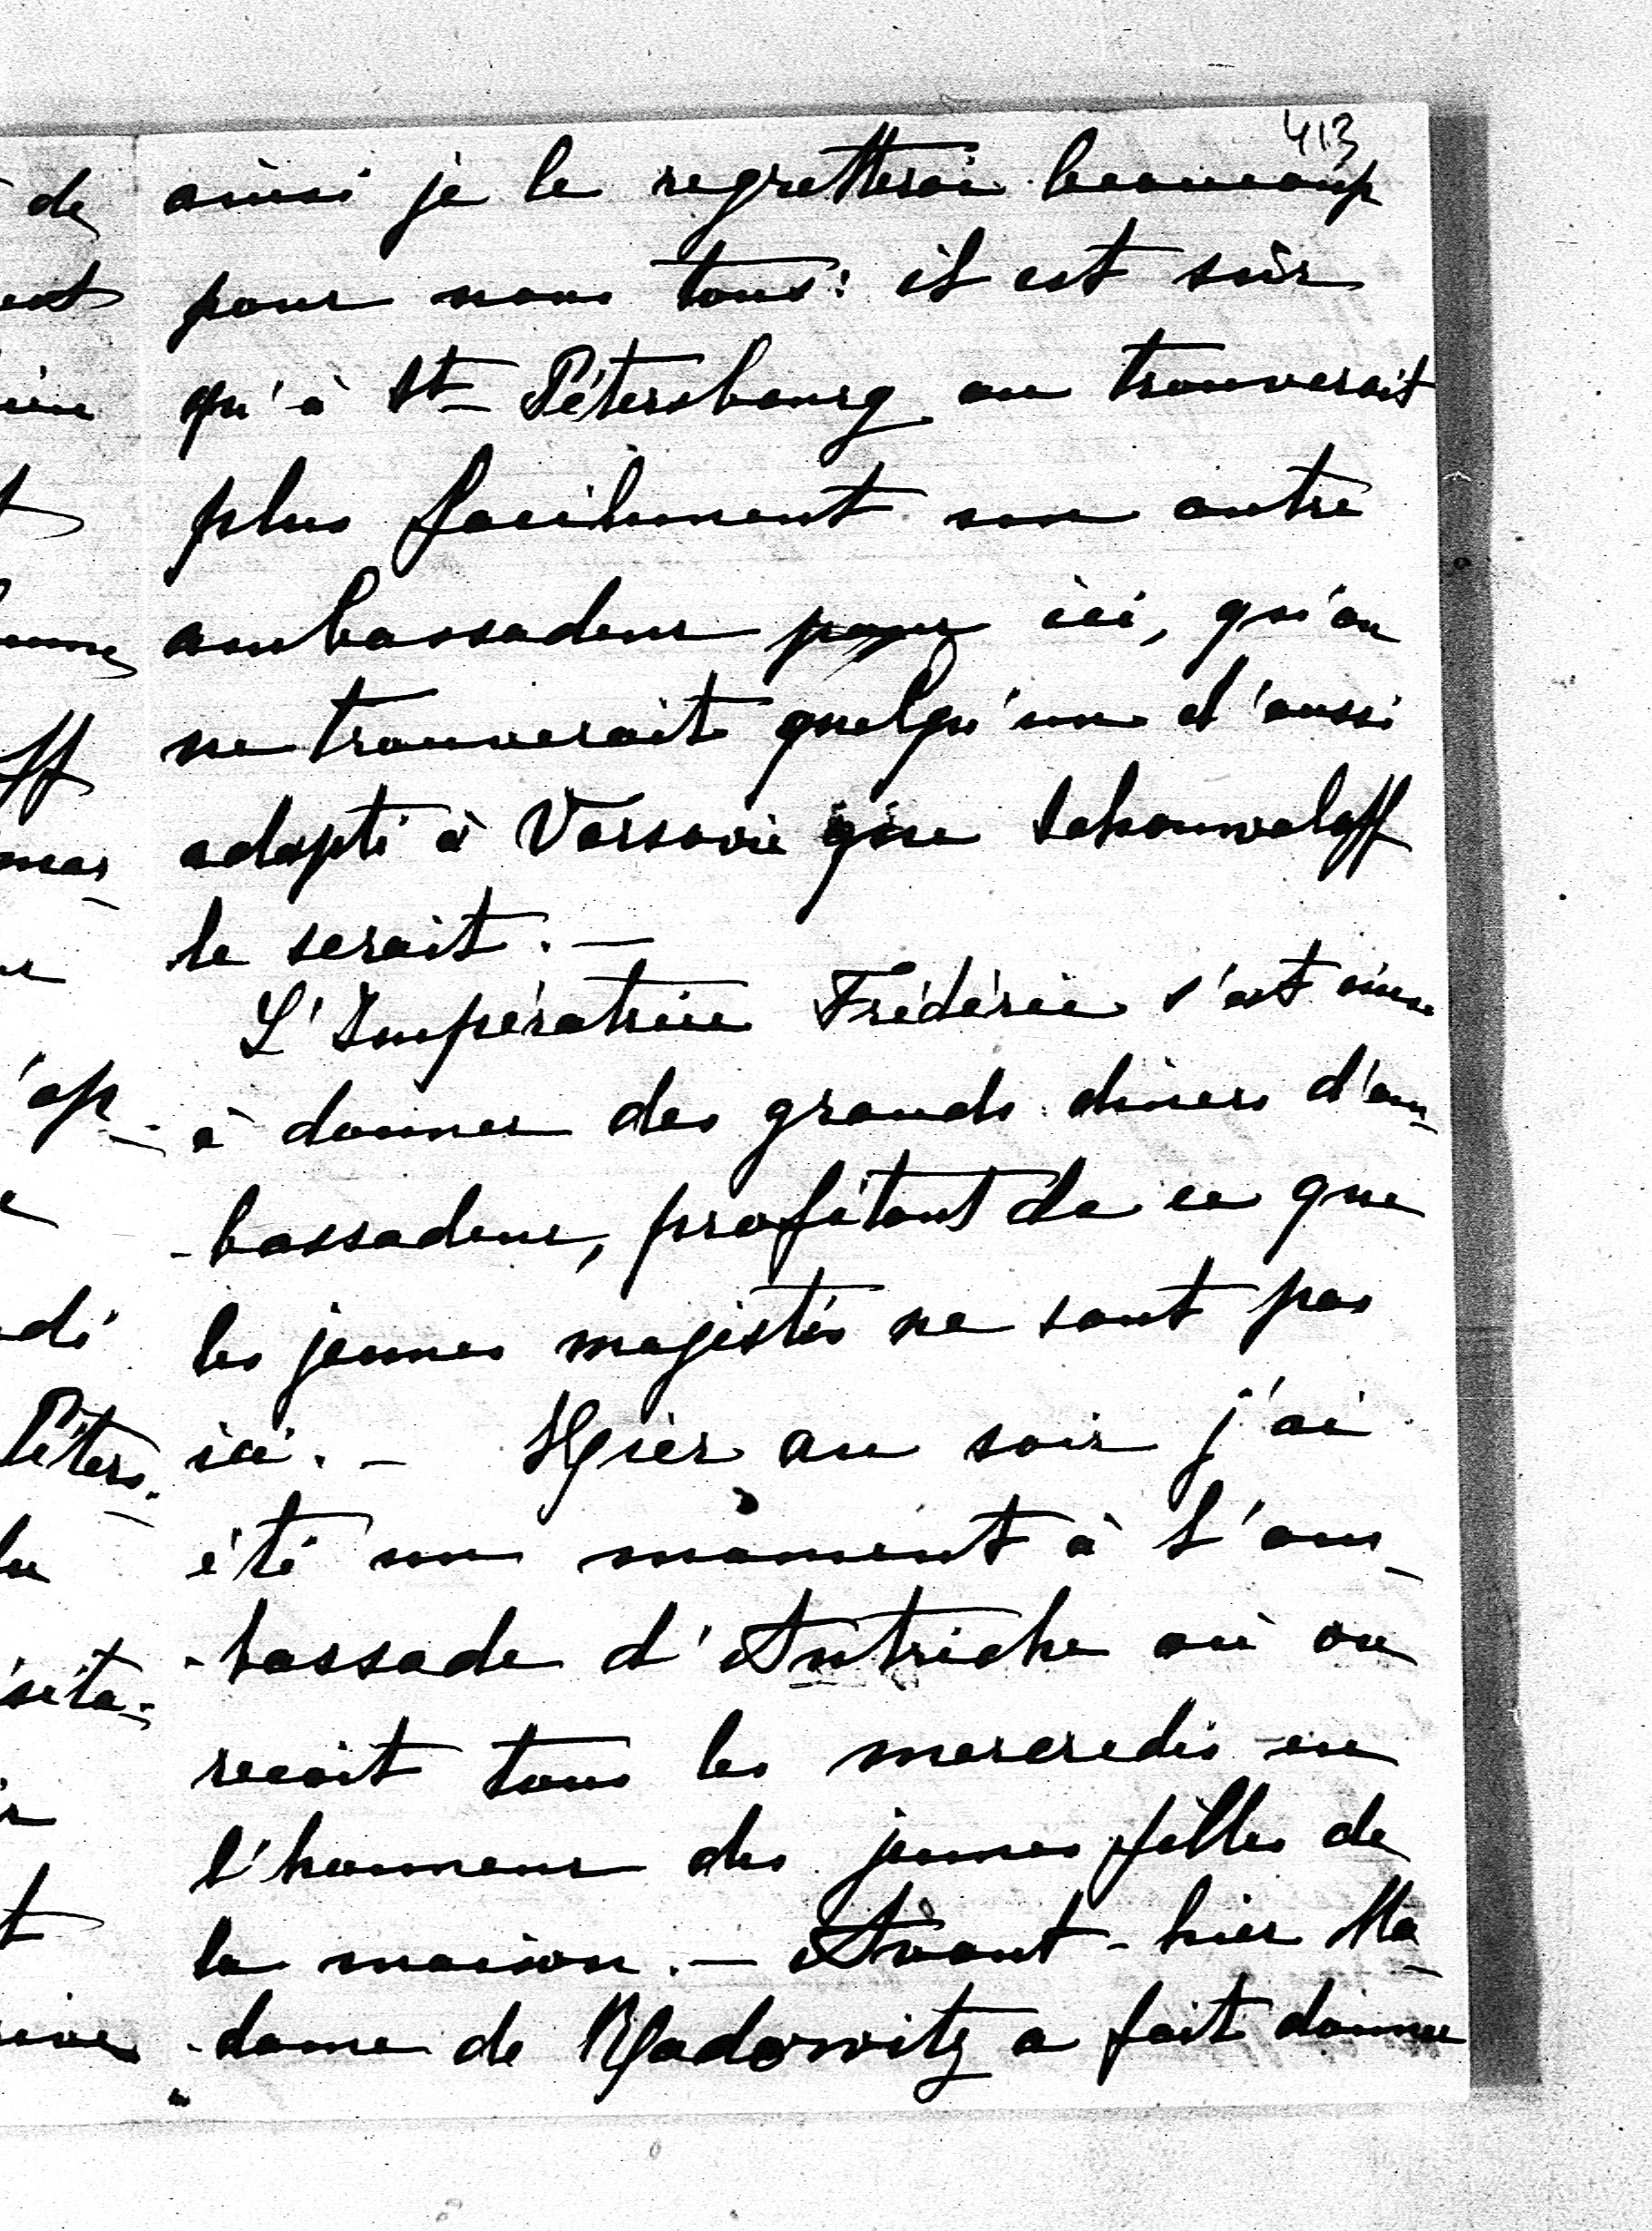 413
ainsi je le regretterai beaucoup
pour nous tous: il est sûr
qu'à St-Pétersbourg on trouverait
plus facilement un autre
ambassadeur pour ici, qu'on
ne trouverait quelqu'un d'aussi
adapté à Varsovie que Schouwaloff
le serait. —
L'Impératrice Frédéric s'est mise
à donner des grands dîners d'am-
-bassadeur, profitant de ce que
les jeunes majestés ne sont pas
ici. — Hier au soir j'ai
été un moment à l'am-
-bassade d'Autriche où on
reçoit tous les mercredis en
l'honneur des jeunes filles de
la maison. — Avant-hier Ma-
-dame de Radowitz a fait donner